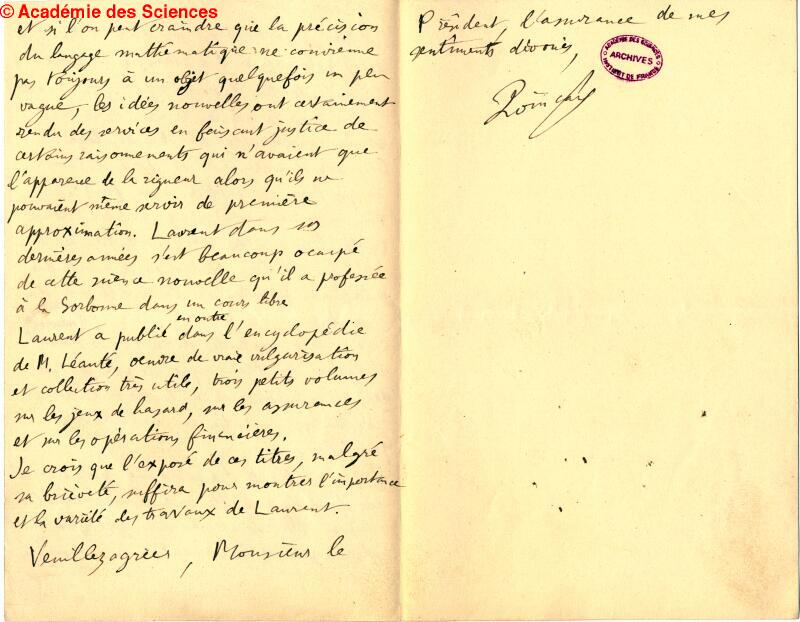 © Académie des Sciences
et si l'on peut craindre que la précision
du langage mathématique ne convienne
pas toujours à un objet quelquefois un peu
vague, les idées nouvelles ont certainement
rendu des services en faisant justice de
certains raisonnements qui n'avaient que
l'apparence de la rigueur alors qu'ils ne
pouvaient même servir de première
approximation. Laurent dans ses
dernières années s'est beaucoup occupé
de cette science nouvelle qu'il a professée
à la Sorbonne dans un cours libre
Laurent a publié en outre dans l'encyclopédie
de M. Léauté, oeuvre de vraie vulgarisation
et collection très utile, trois petits volumes
sur les jeux de hasard, sur les assurances
et sur les opérations financières.
Je crois que l'exposé de ces titres, malgré
sa brièveté, suffira pour montrer l'importance
et la variété des travaux de Laurent.
Veuillez agréer, Monsieur le
Président, l'assurance de mes
sentiments dévoués,
ACADÉMIE DES SCIENCES
ARCHIVES
INSTITUT DE FRANCE
Poincaré